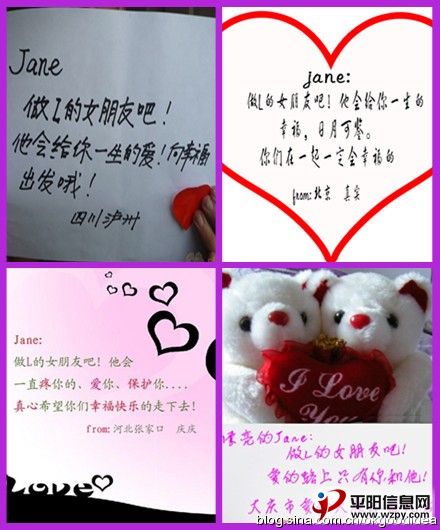 Jane
做L的女朋友吧！
他会给你一生的爱！向幸福
出发哦！
四川泸州
jane:
做L的女朋友吧！他会给你一生的
幸福，日月可鉴。
你们在一起一定会幸福的
from:北京 真实
Jane:
做L的女朋友吧！他会
一直疼你的、爱你、保护你....
真心希望你们幸福快乐的走下去！
from:河北张家口 庆庆
Love
I Love
You
漂亮的Jane:
做L的女朋友吧！
爱的路上只有你和他！
大庆市
平阳信息网
www.wzpy.com
blog.sina.com.cn/